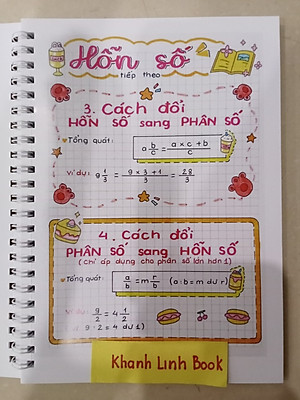 Hỗn số
tiếp theo
3. Cách đổi
HỖN SỐ sang PHÂN SỐ
Tổng quát: a b/c = a x c + b / c
Ví dụ: 9 1/3 = 9 x 3 + 1 / 3 = 28/3
4. Cách đổi
PHÂN SỐ sang HỖN SỐ
(chỉ áp dụng cho phân số lớn hơn 1)
Tổng quát: a/b = m r/b (a : b = m dư r)
Ví dụ: 9/2 = 4 1/2
9 : 2 = 4 dư 1)
Khanh Linh Book